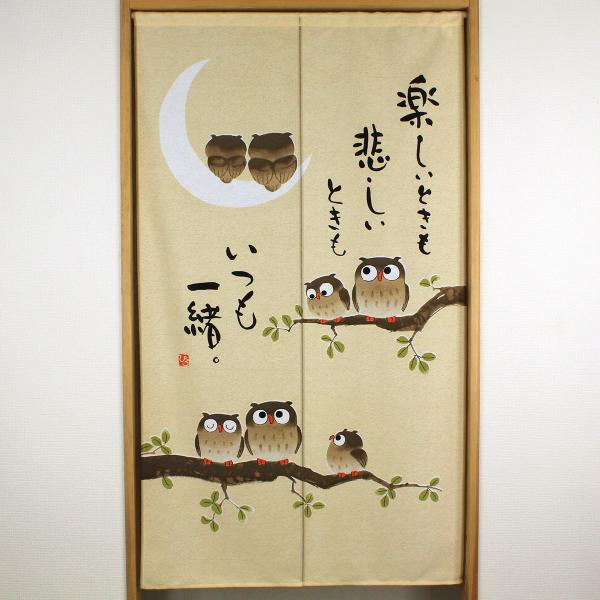 楽しいときも
悲しい
ときも
いつも
一緒。